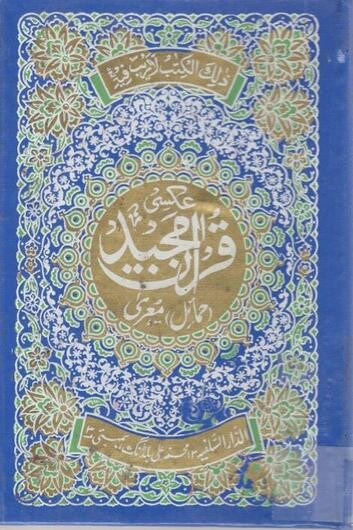 ذٰلِكَ الْكِتٰبُ لَارَيْبَ فِيْهِ
عکسی
قرآن مجید
(حمائل) معریٰ
الدار السلفیہ ۱۳ محمد علی بلڈنگ بمبئی ۳